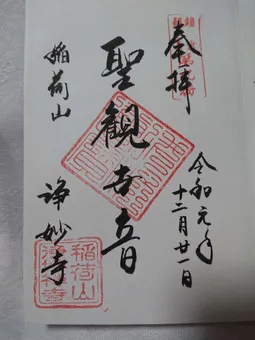 奉拝
令和元年
十二月廿一日
聖観世音
稲荷山
淨妙寺
稲荷山